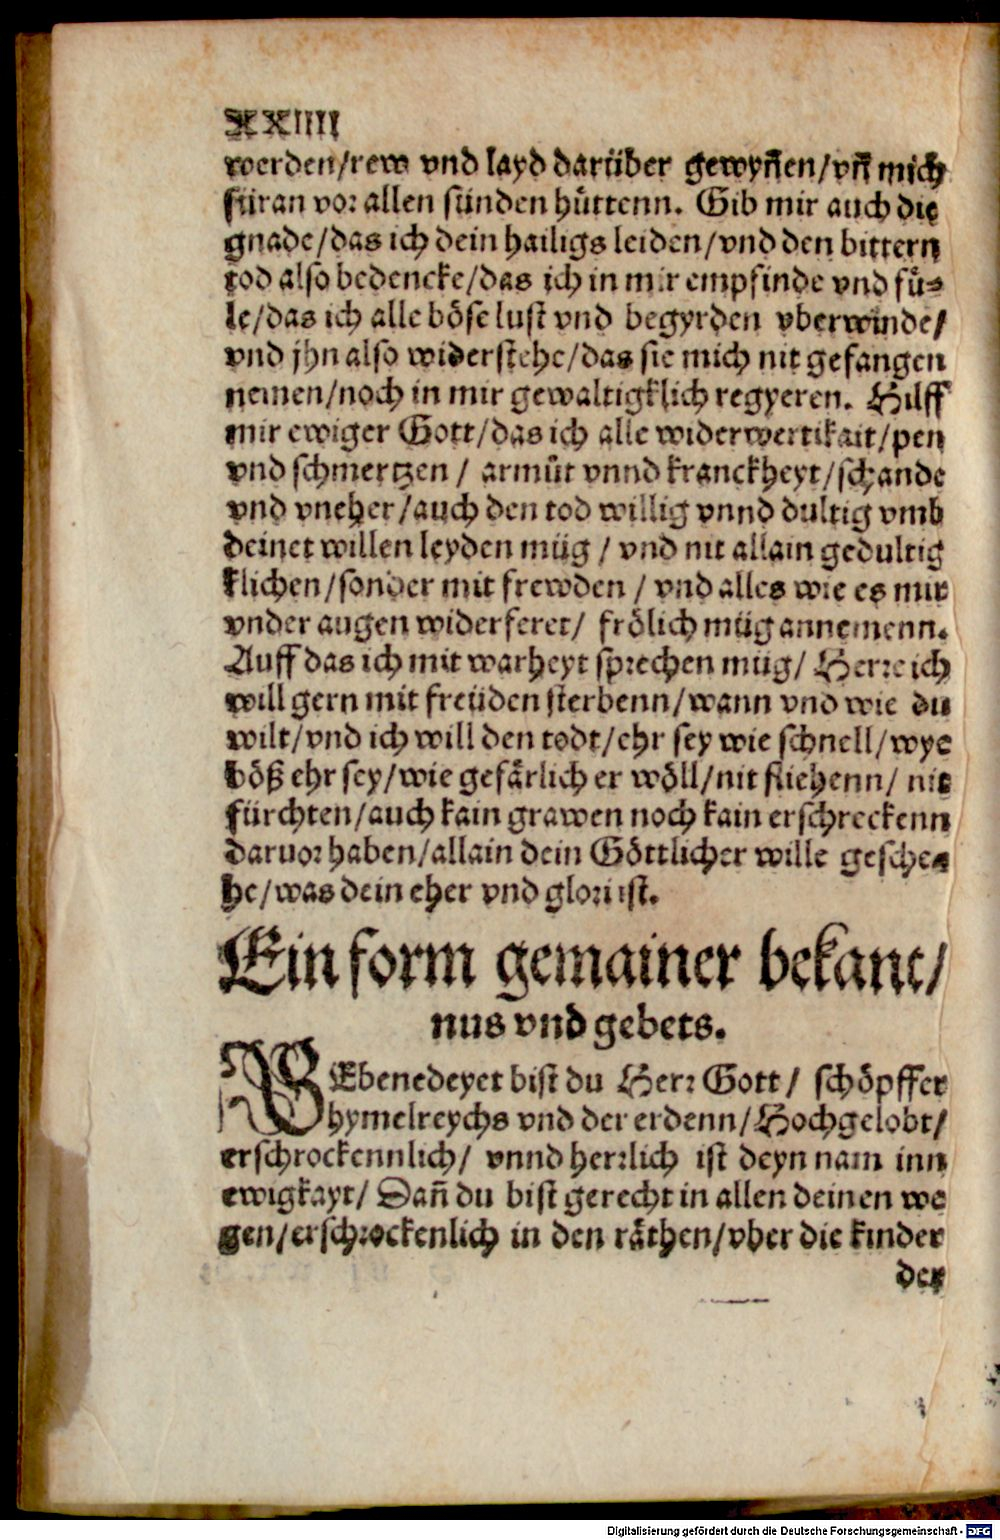 XXIIII
werden/rew vnd layd darüber gewyn̄en/vn̄ mich
füran vor allen sünden hüttenn. Gib mir auch die
gnade/das ich dein hailigs leiden/vnd den bittern
tod also bedencke/das ich in mir empfinde vnd fü⸗
le/das ich alle böse lust vnd begyrden vberwinde/
vnd jhn also widerstehe/das sie mich nit gefangen
nemen/noch in mir gewaltigklich regyeren. Hilff
mir ewiger Gott/das ich alle widerwertikait/pen
vnd schmertzen / armůt vnnd kranckheyt/schande
vnd vneher/auch den tod willig vnnd dultig vmb
deinet willen leyden müg / vnd nit allain gedultig
klichen/sonder mit frewden / vnd alles wie es mir
vnder augen widerferet/ frölich müg annemenn.
Auff das ich mit warheyt sprechen müg/ Herre ich
will gern mit freüden sterbenn/wann vnd wie du
wilt/vnd ich will den todt/ehr sey wie schnell/wye
böß ehr sey/wie gefärlich er wöll/nit fliehenn/ nit
fürchten/auch kain grawen noch kain erschreckenn
daruor haben/allain dein Göttlicher wille gesche⸗
he/was dein eher vnd glori ist.
Ein form gemainer bekant/
nus vnd gebets.
GEbenedeyet bist du Herr Gott/ schöpffer
hymelreychs vnd der erdenn/Hochgelobt/
erschrockennlich/ vnnd herrlich ist deyn nam inn
ewigkayt/ Dan̄ du bist gerecht in allen deinen we
gen/erschrockenlich in den räthen/vber die kinder
der
Digitalisierung gefördert durch die Deutsche Forschungsgemeinschaft - DFG